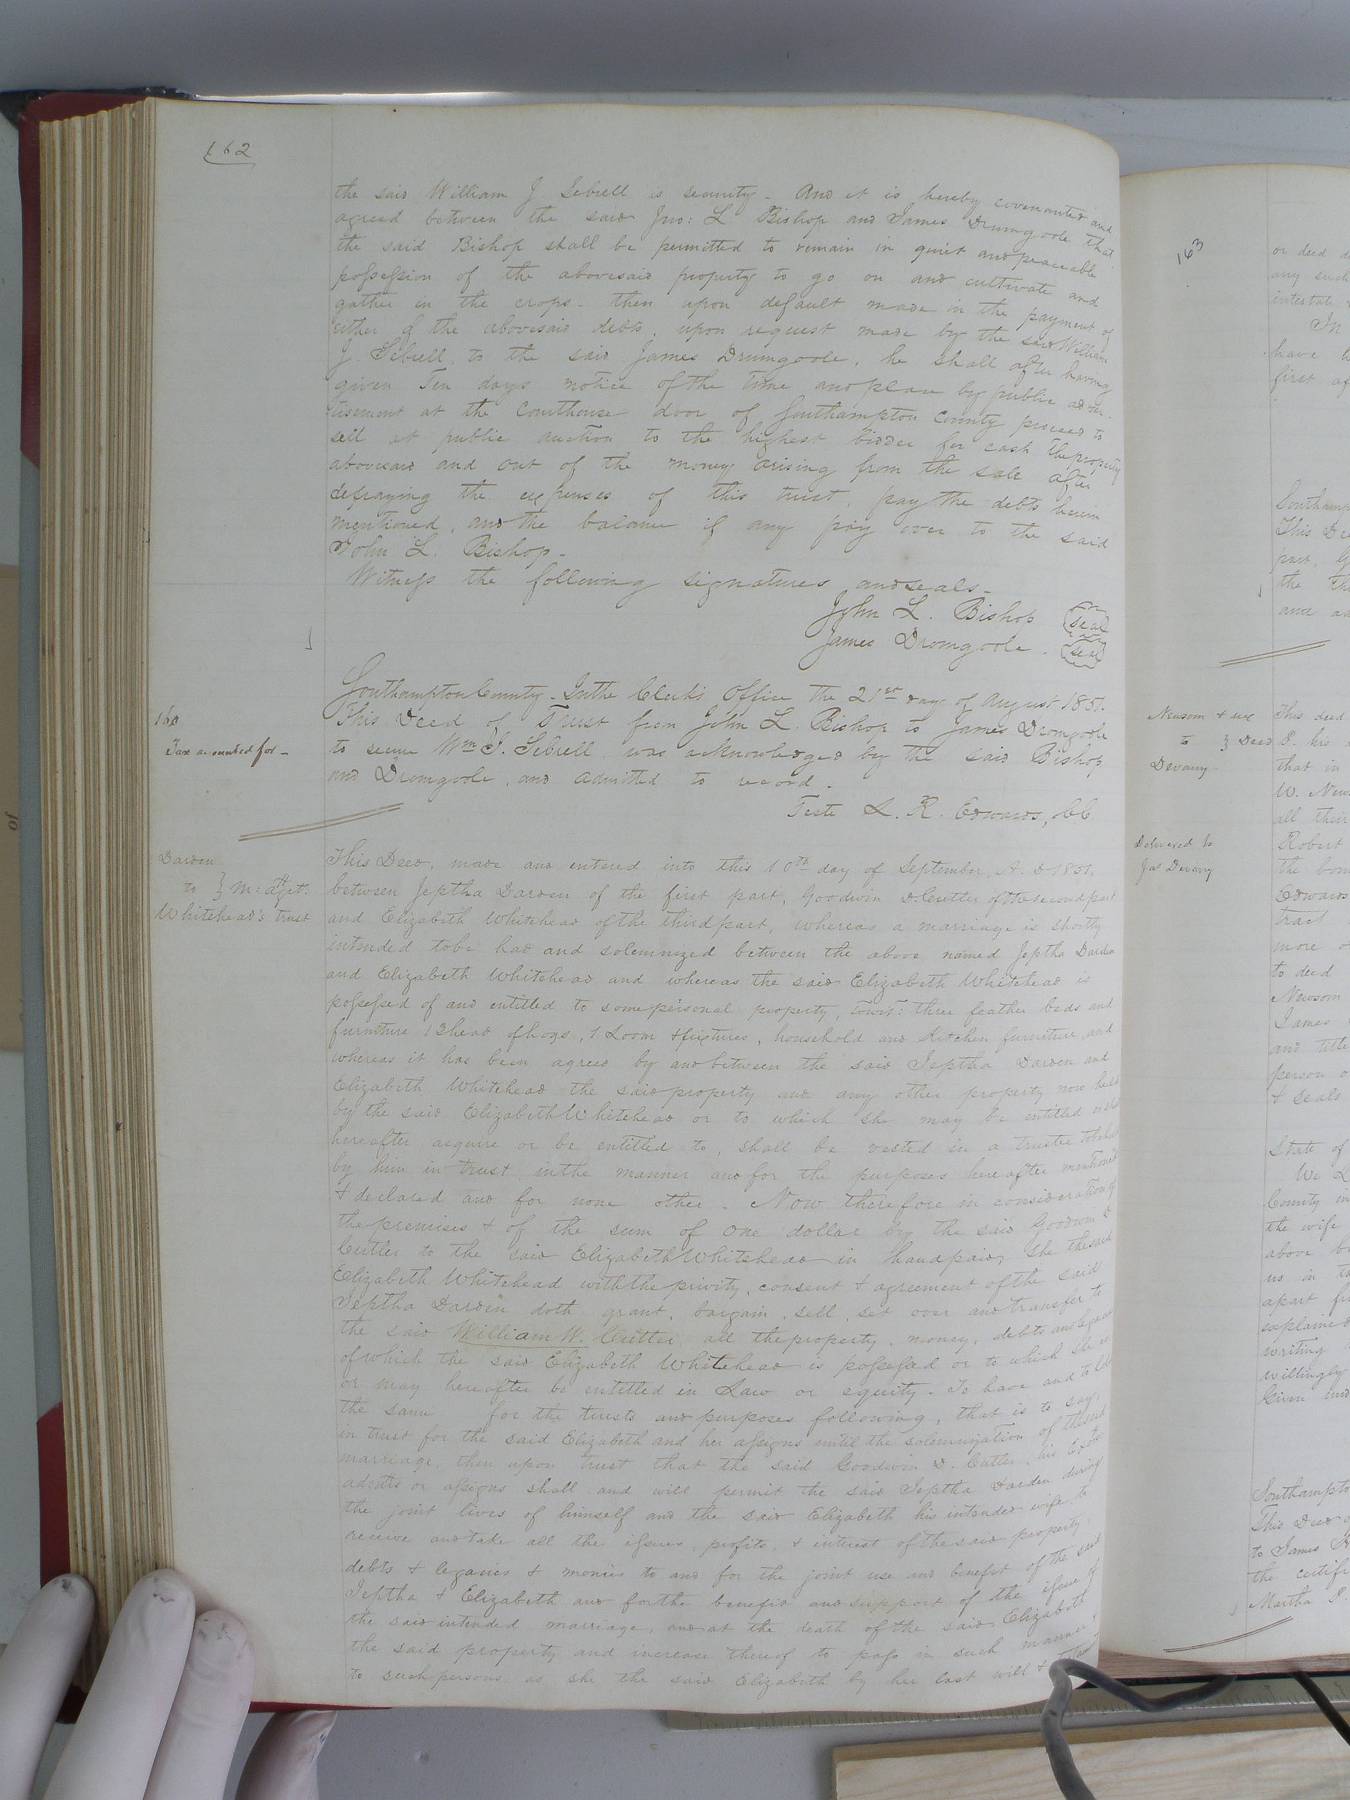 162
the said William J Sebrell is security - And it is hereby covenanted and
agreed between the said Jno: L Bishop and James Drumgoole that
the said Bishop shall be permitted to remain in quiet and peaceable
possession of the abovesaid property to go on and cultivate and
gather in the crops - then upon default made in the payment of
either of the abovesaid debts, upon request made by the said William
J. Sebrell, to the said James Drumgoole, he shall after having
given Ten days notice of the time and place by public adver-
tisement at the Courthouse door of Southampton County proceed to
sell at public auction to the highest bidder for cash the property
abovesaid and out of the money arising from the sale after
defraying the expenses of this trust, pay the debts herein
mentioned, and the balance if any pay over to the said
John L. Bishop -
Witness the following signatures and seals -
John L. Bishop seal
James Dromgoole. seal
Southampton County. In the Clerk's Office the 21st day of August 1851.
This Deed of Trust from John L. Bishop to James Dromgoole
to secure Wm J. Sebrell was acknowledged by the said Bishop
and Dromgoole, and admitted to record.
Teste L. R. Edwards, CC
160
Tax accounted for -
Darden
to } M: agt:
Whitehead's trust
This Deed, made and entered into this 10th day of September A. D 1851.
between Jeptha Darden of the first part, Goodwin D. Cutler of the second part
and Elizabeth Whitehead of the third part, whereas a marriage is shortly
intended to be had and solemnized between the above named Jeptha Darden
and Elizabeth Whitehead and whereas the said Elizabeth Whitehead is
possessed of and entitled to some personal property, towit: three feather beds and
furniture 13 head of hogs, 1 Loom & fixtures, household and Kitchen furniture and
whereas it has been agreed by and between the said Jeptha Darden and
Elizabeth Whitehead the said property and any other property now held
by the said Elizabeth Whitehead or to which she may be entitled or
hereafter acquire or be entitled to, shall be vested in a trustee to be held
by him in trust, in the manner and for the purposes hereafter mentioned
& declared and for none other. Now therefore in consideration of
the premises & of the sum of one dollar by the said Goodwin D
Cutler to the said Elizabeth Whitehead in hand paid, she the said
Elizabeth Whitehead with the privity, consent & agreement of the said
Jeptha Darden doth grant, bargain, sell, set over and transfer to
the said William W. Cutler all the property, money, debts and legacies
of which the said Elizabeth Whitehead is possessed or to which she is
or may hereafter be entitled in Law or equity - To have and to hold
the same for the trusts and purposes following, that is to say;
in trust for the said Elizabeth and her assigns until the solemnization of the said
marriage, then upon trust that the said Goodwin D. Cutler, his Exors
admrs or assigns shall and will permit the said Jeptha Darden during
the joint lives of himself and the said Elizabeth his intended wife to
receive and take all the issues, profits, & interest of the said property
debts & legacies & monies to and for the joint use and benefit of the said
Jeptha & Elizabeth and for the benefit and support of the issue of
the said intended marriage, and at the death of the said Elizabeth
the said property and increase thereof to pass in such manner &
to such persons as she the said Elizabeth by her last will &
163
or deed
any such
intestate
In
have
first
Southamp
This De
part,
the
and
Newsom & ux
to } Deed
Devany
Delivered to
Jas Devany
This deed
P. his
that in
W. News
all their
Robert
the
Edwards
tract
more
to deed
Newsom
James
and title
person
& seals
State of
We
County in
the wife
above
us in
apart
explained
writing
willingly
Given
Southampto
This Deed
to James
the certifi
Martha P.